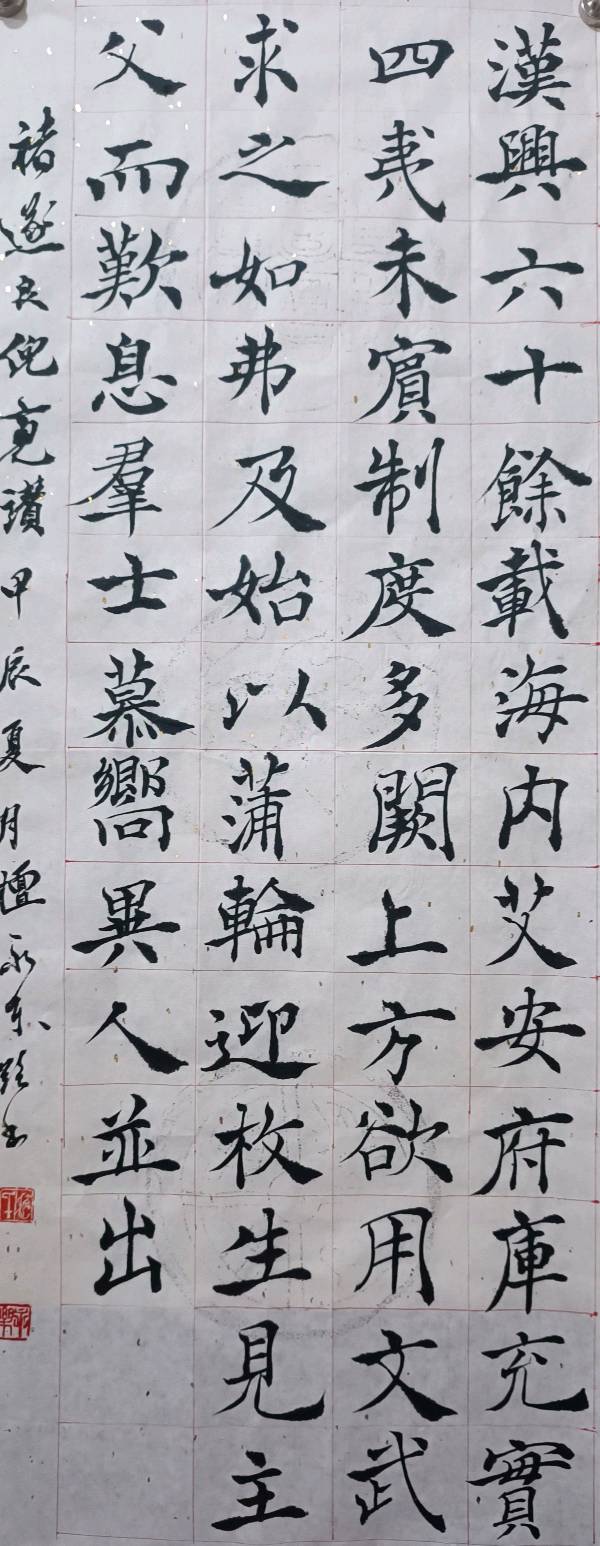 漢興六十餘載海内艾安府庫充實
四夷未賓制度多闕上方欲用文武
求之如弗及始以蒲輪迎枚生見主
父而歎息羣士慕嚮異人並出
褚遂良倪寬讚甲辰夏月檀永東臨書